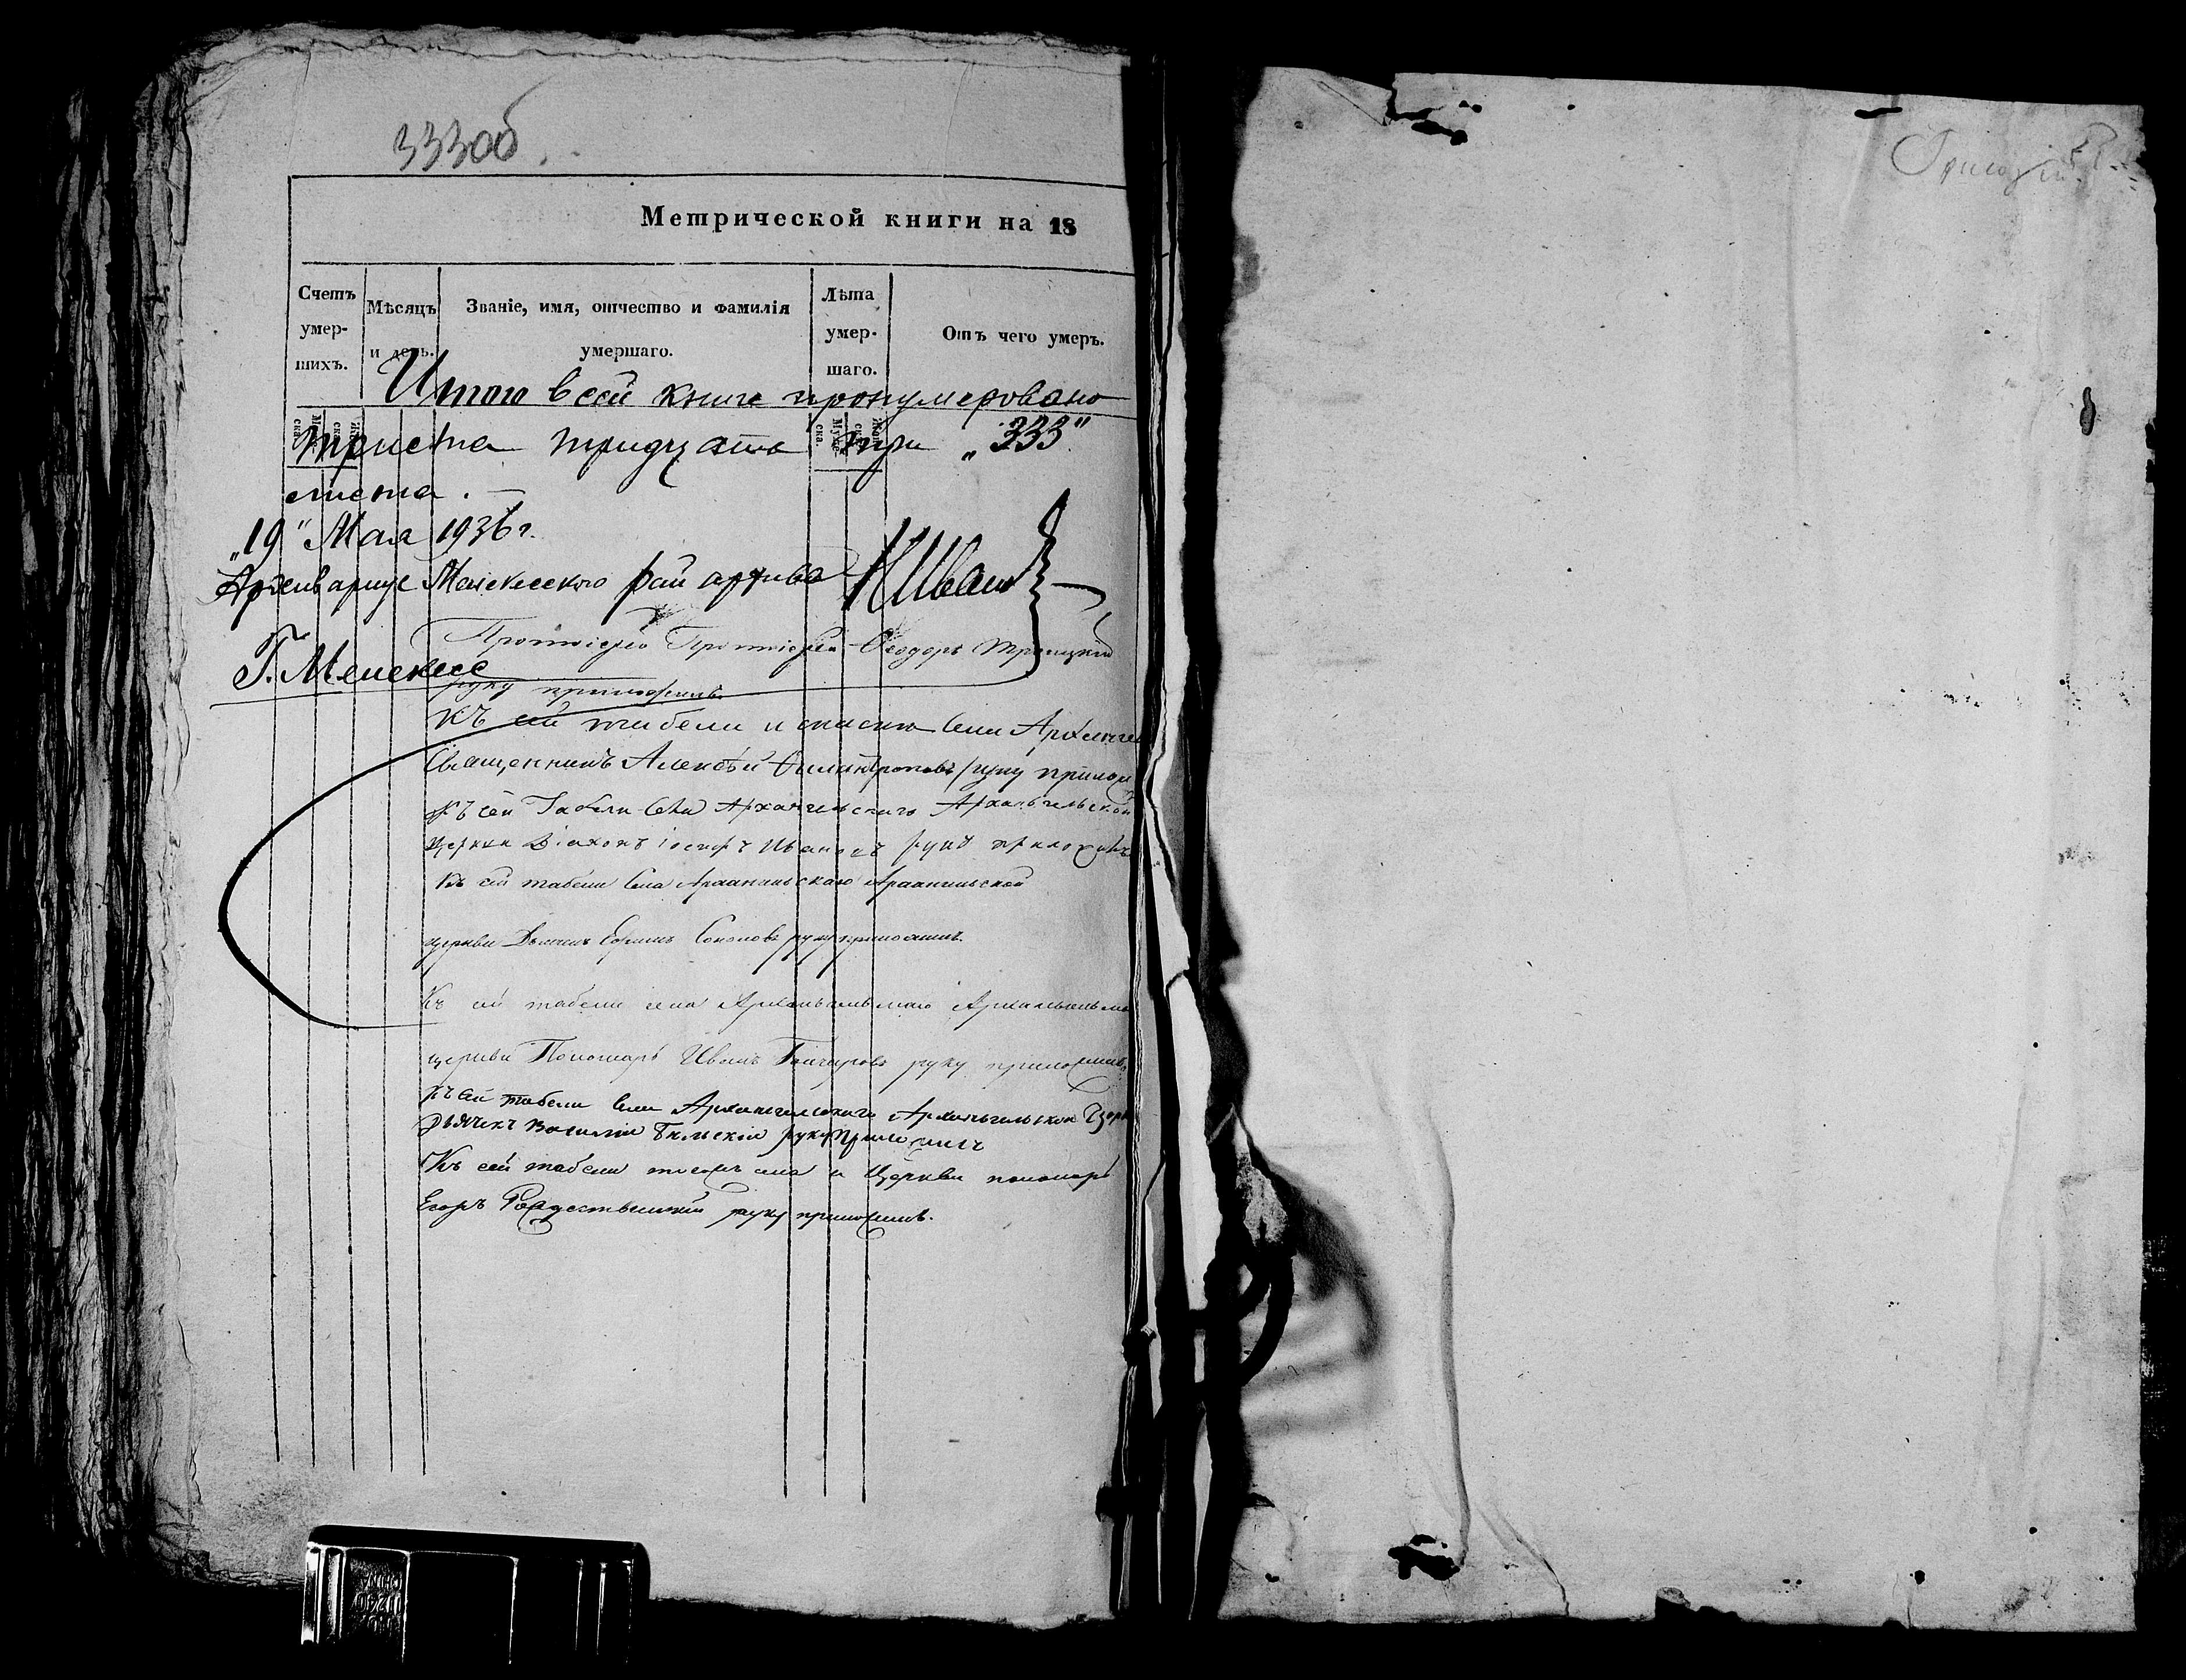 333об.
Метрической книги на 18
Счетъ умер-шихъ.
Мѣсяцъ и день.
Званіе, имя, отчество и фамилія умершаго.
Лѣта умер-шаго.
Отъ чего умеръ.
Итого в сей книге пронумеровано
триста тридцать три „333"
листа. —
„19" Мая 1936 г.
Архивариус Мелекесского рай архива
Г. Мелекесс
Протоіерей Ѳеодоръ Троицкій
руку приложилъ.
Къ сей табели и списку села Архангел
Священникъ Алексѣй руку прилож
Къ сей Табели Села Архангельскаго Архангельской
церкви Діаконъ Іосифъ Ивановъ руку приложилъ
Къ сей табели села Архангельскаго Архангельской
церкви Дьячекъ Ефимъ Соколовъ руку приложилъ.
Къ сей табели села Архангельскаго Архангельской
церкви Пономарь Иванъ Гончаровъ руку приложилъ
Къ сей табели села Архангельскаго Архангельской Церк
Дьячекъ Василій руку приложилъ
Къ сей табели тогожъ села и Церкви пономарь
Егоръ Рождественскій руку приложилъ.